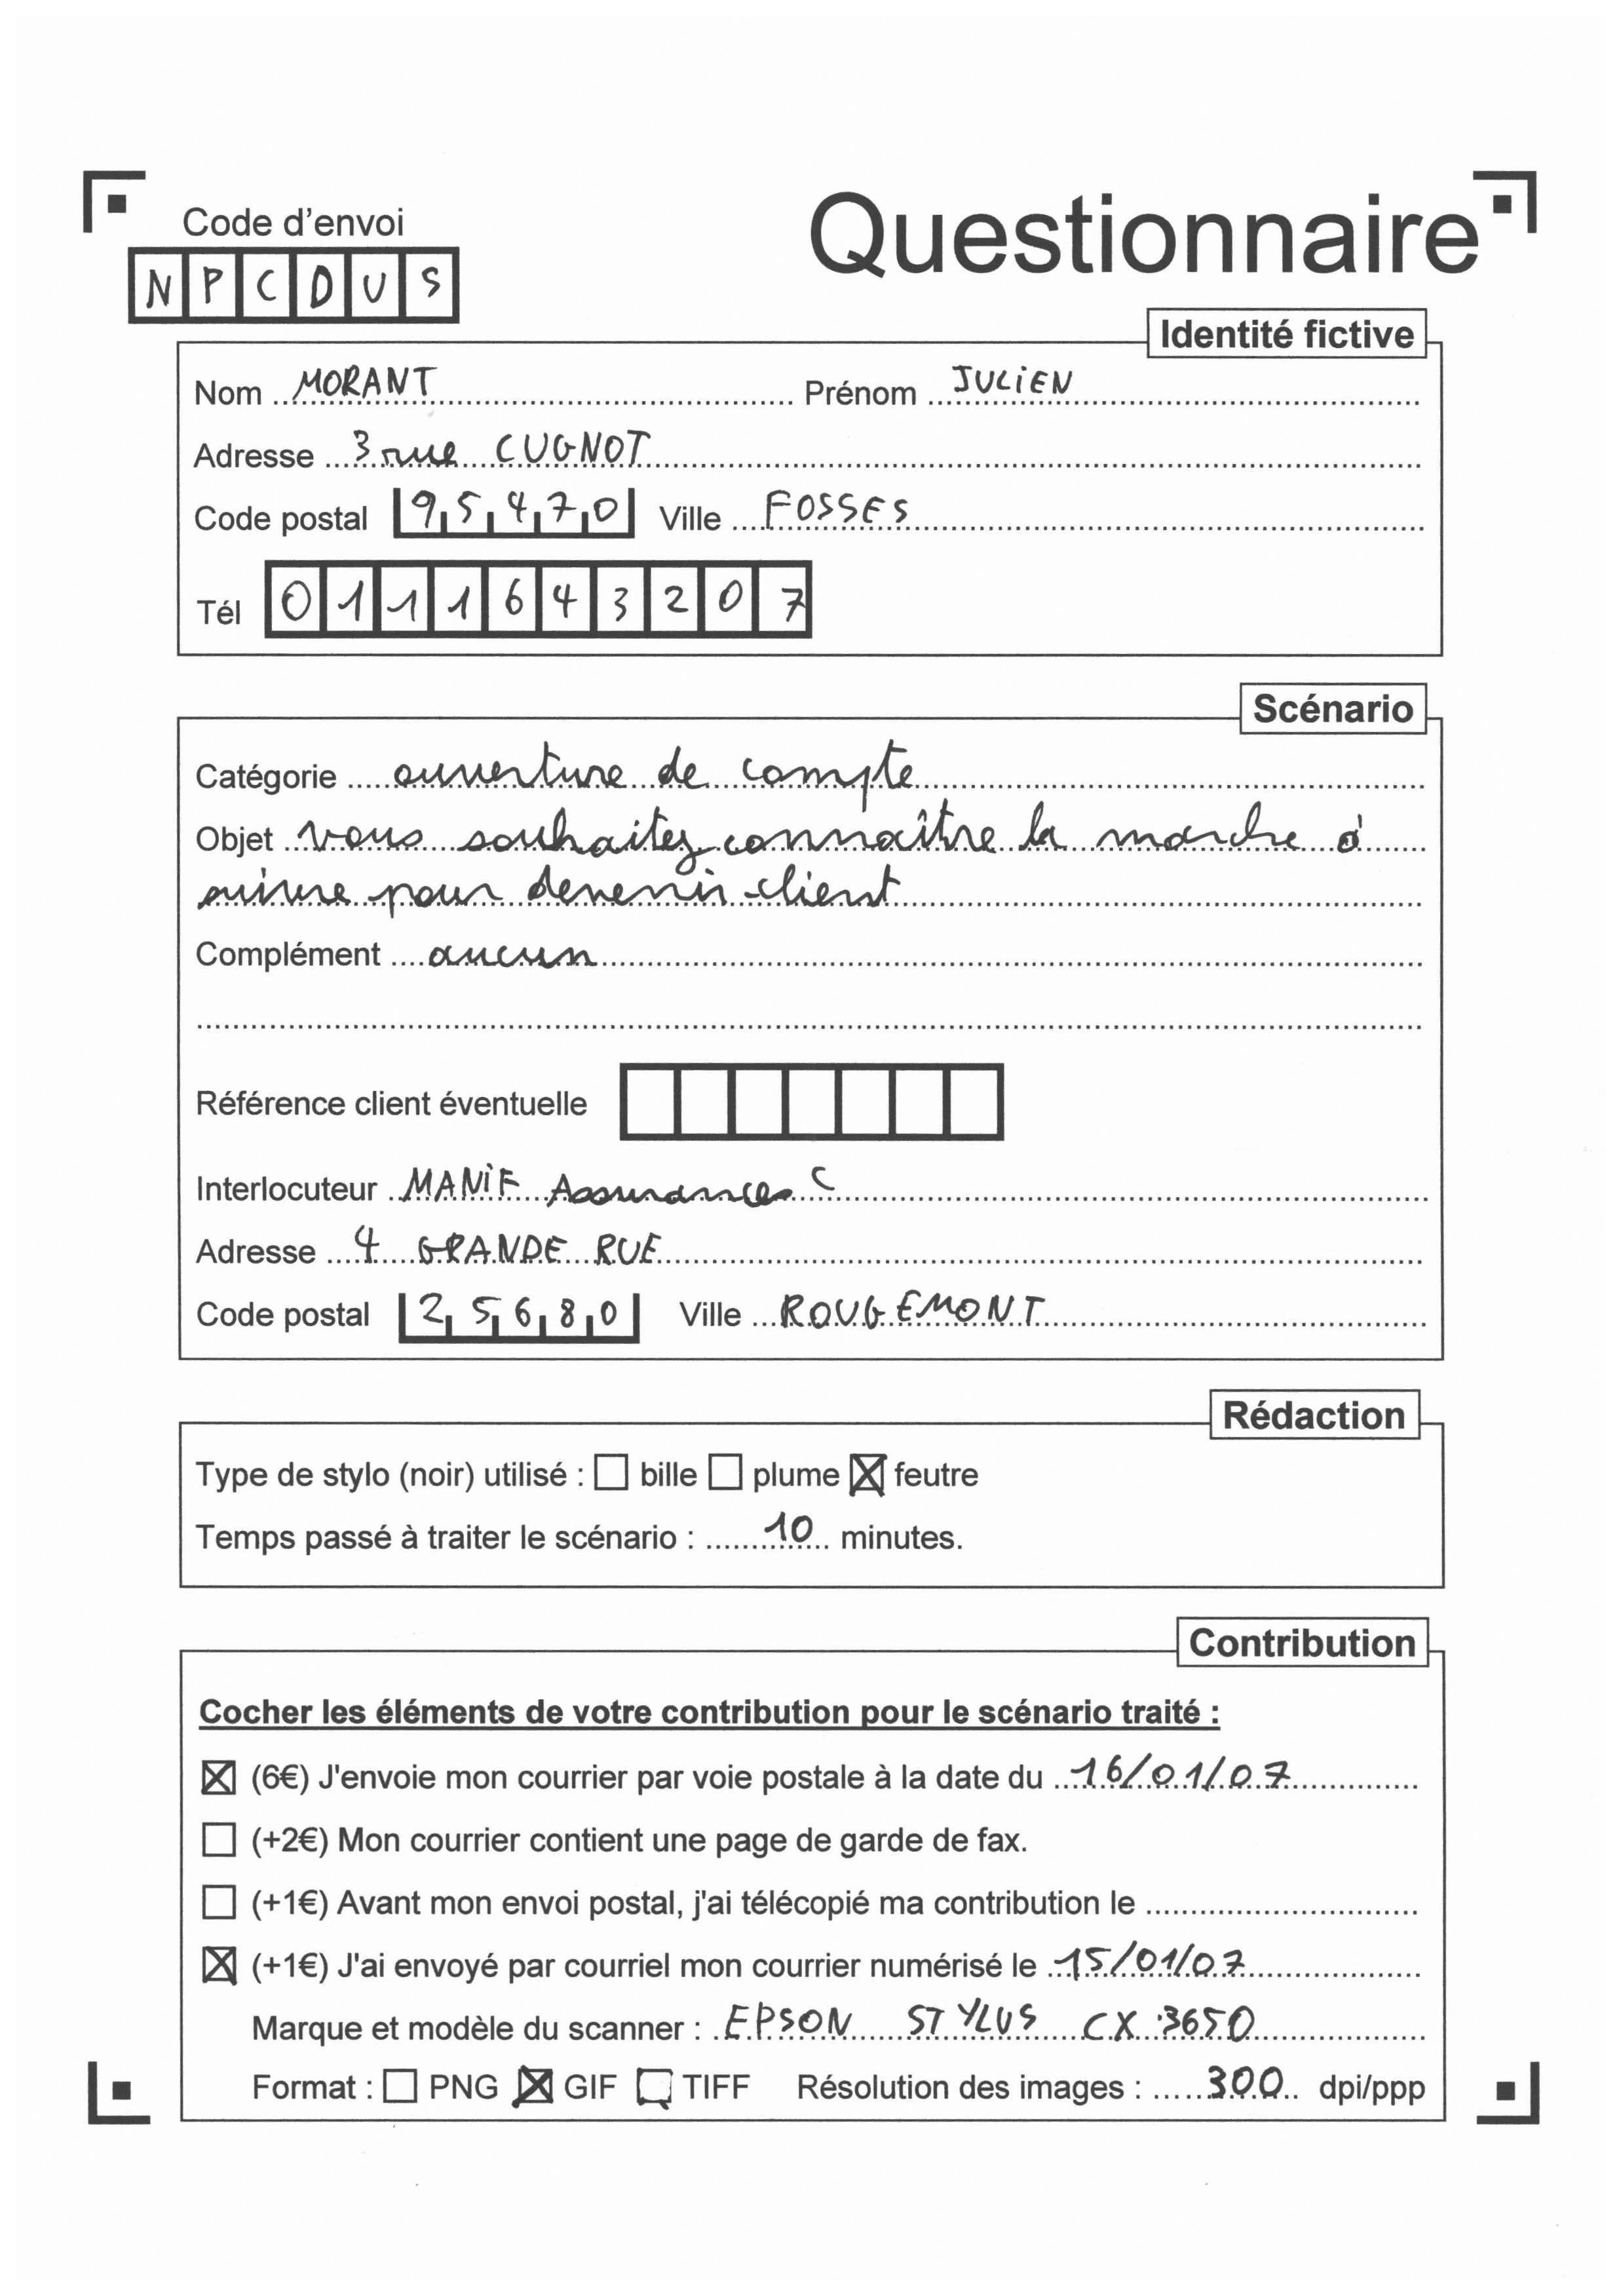 Code d'envoi
Questionnaire
NPCDUS
Identité fictive
Nom MORANT Prénom JULIEN
Adresse 3 rue CUGNOT
Code postal 95470 Ville FOSSES
Tél 0111643207
Scénario
Catégorie ouverture de compte
Objet vous souhaitez connaître la marche à
suivre pour devenir client
Complément aucun
Référence client éventuelle
Interlocuteur MANIF Assurances C
Adresse 4 GRANDE RUE
Code postal 25680 Ville ROUGEMONT
Rédaction
Type de stylo (noir) utilisé : ☐ bille ☐ plume ☒ feutre
Temps passé à traiter le scénario : 10 minutes.
Contribution
Cocher les éléments de votre contribution pour le scénario traité :
☒ (6€) J'envoie mon courrier par voie postale à la date du 16/01/07
☐ (+2€) Mon courrier contient une page de garde de fax.
☐ (+1€) Avant mon envoi postal, j'ai télécopié ma contribution le
☒ (+1€) J'ai envoyé par courriel mon courrier numérisé le 15/01/07
Marque et modèle du scanner : EPSON STYLUS CX 3650
Format : ☐ PNG ☒ GIF ☐ TIFF Résolution des images : 300 dpi/ppp